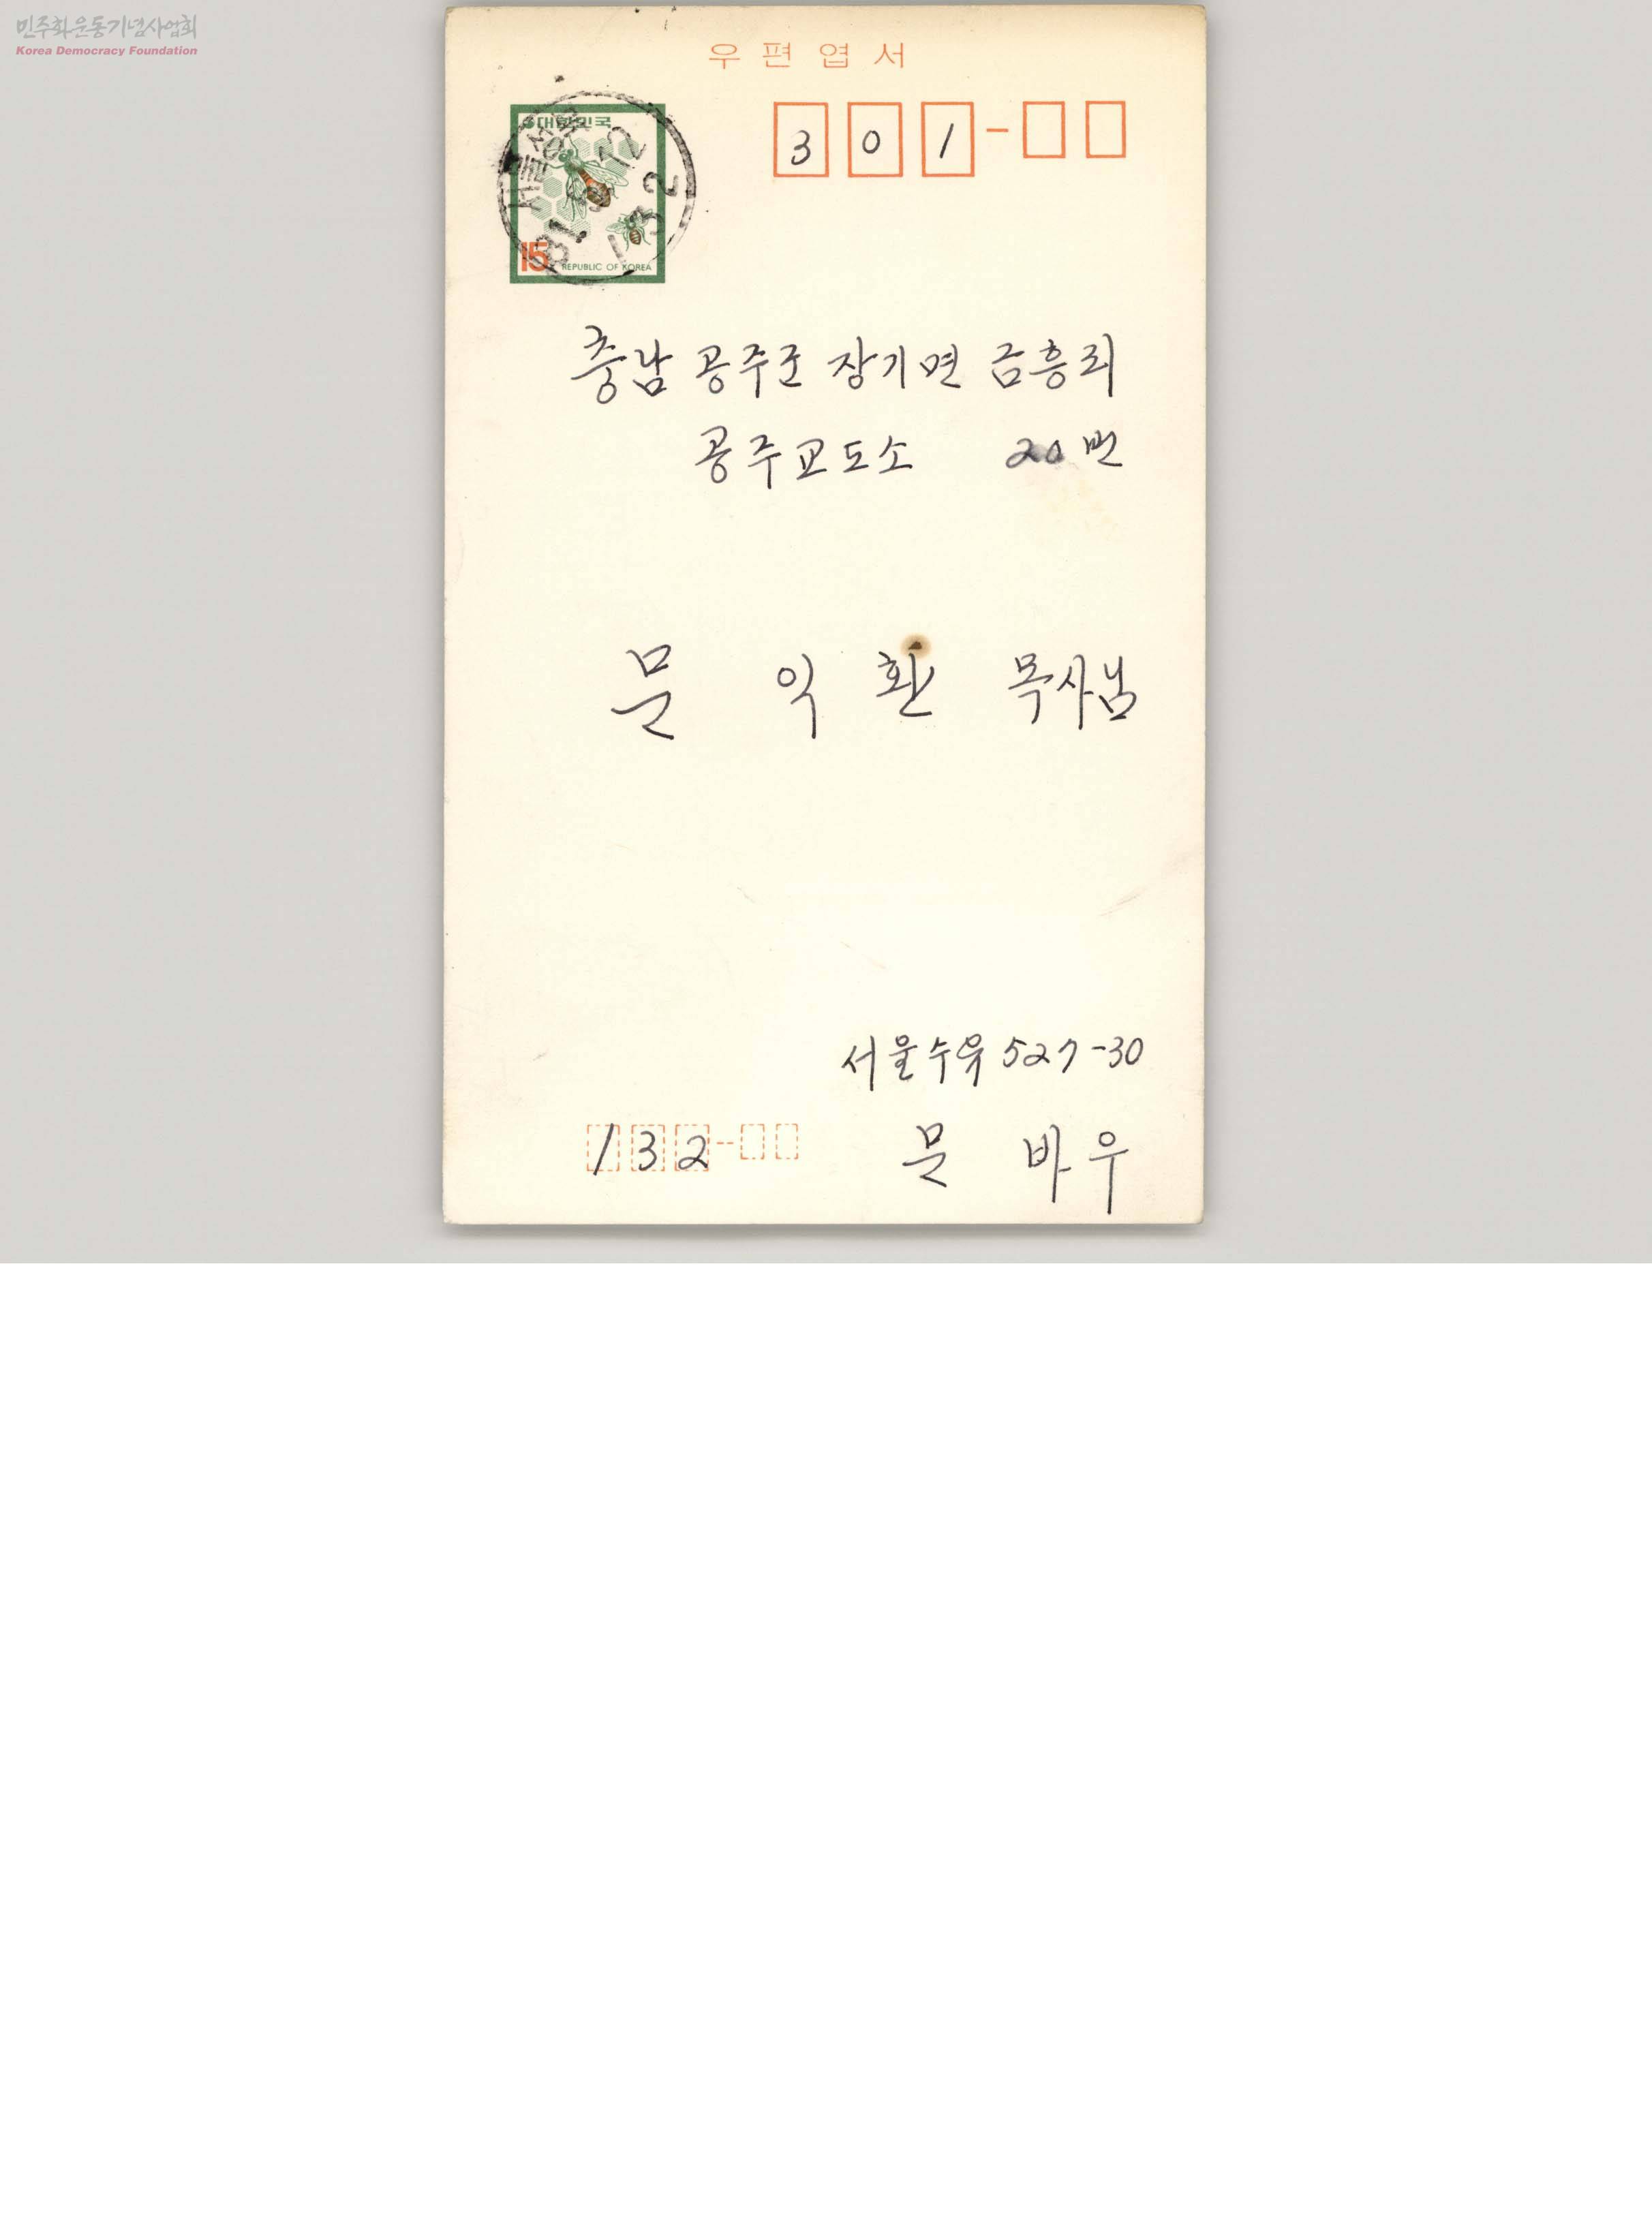 민주화운동기념사업회
Korea Democracy Foundation
우편엽서
301-
대한민국
15
REPUBLIC OF KOREA
충남 공주군 장기면 금흥리
공주교도소 20번
문 익 환 목사님
서울수유 527-30
132-
문 바우